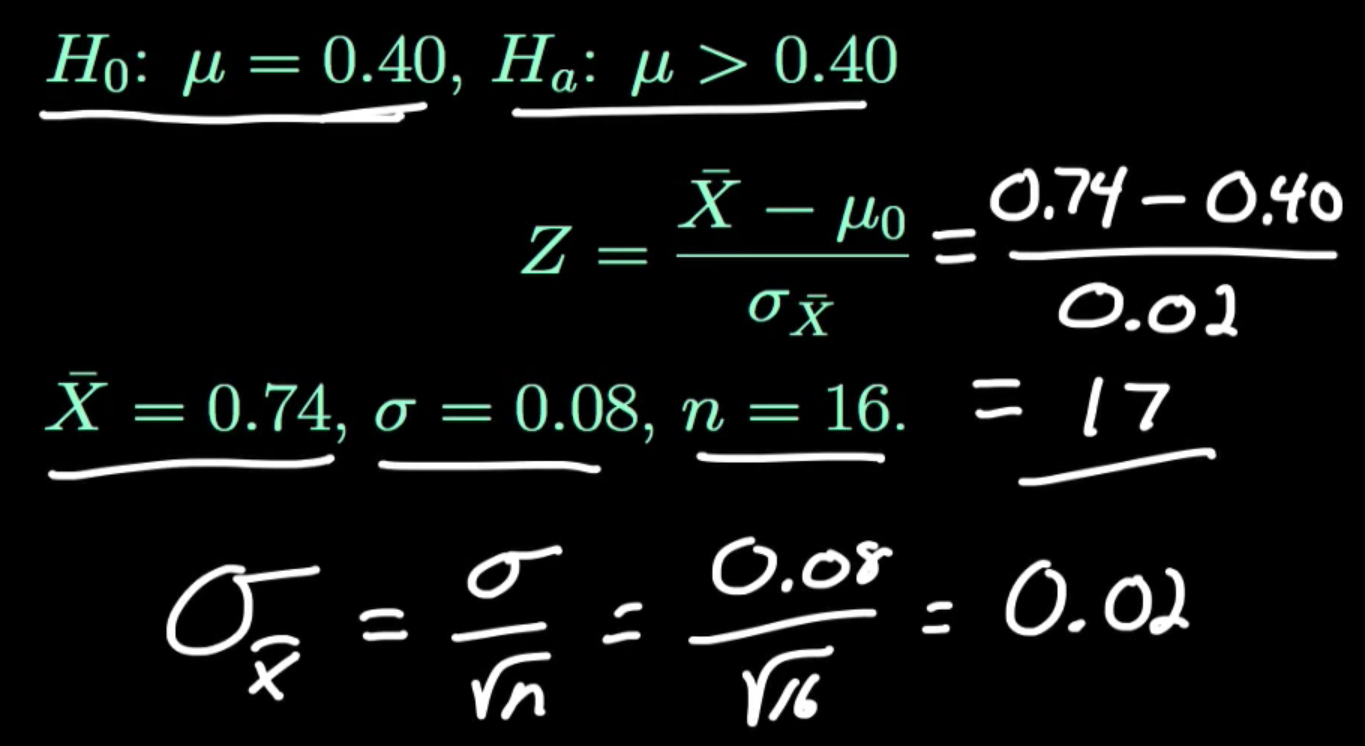 H₀: μ = 0.40, Hₐ: μ > 0.40
Z = (X̄ − μ₀) / σ_X̄ = (0.74 − 0.40) / 0.02
X̄ = 0.74, σ = 0.08, n = 16. = 17
σ_x̄ = σ / √n = 0.08 / √16 = 0.02